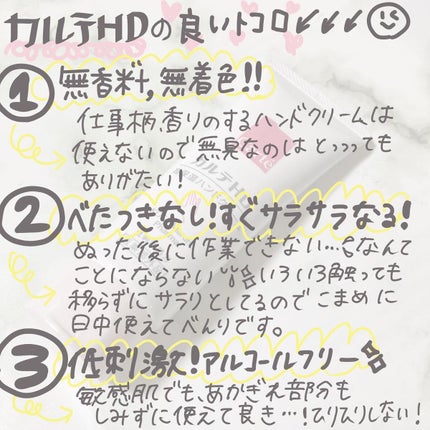 カルテHDの良いトコロ↙↙↙
① 無香料,無着色!!
仕事柄、香りのするハンドクリームは
使えないので無臭なのは とっっっても
ありがたい!
② べたつきなし!すぐサラサラなる!
ぬった後に作業できない…なんて
ことにならない いろいろ触っても
移らずにサラリとしてるので こまめに
日中使えてべんりです。
③ 低刺激!アルコールフリー
敏感肌でも、あかぎれ部分も
しみずに使えて良き…!ひりひりしない!